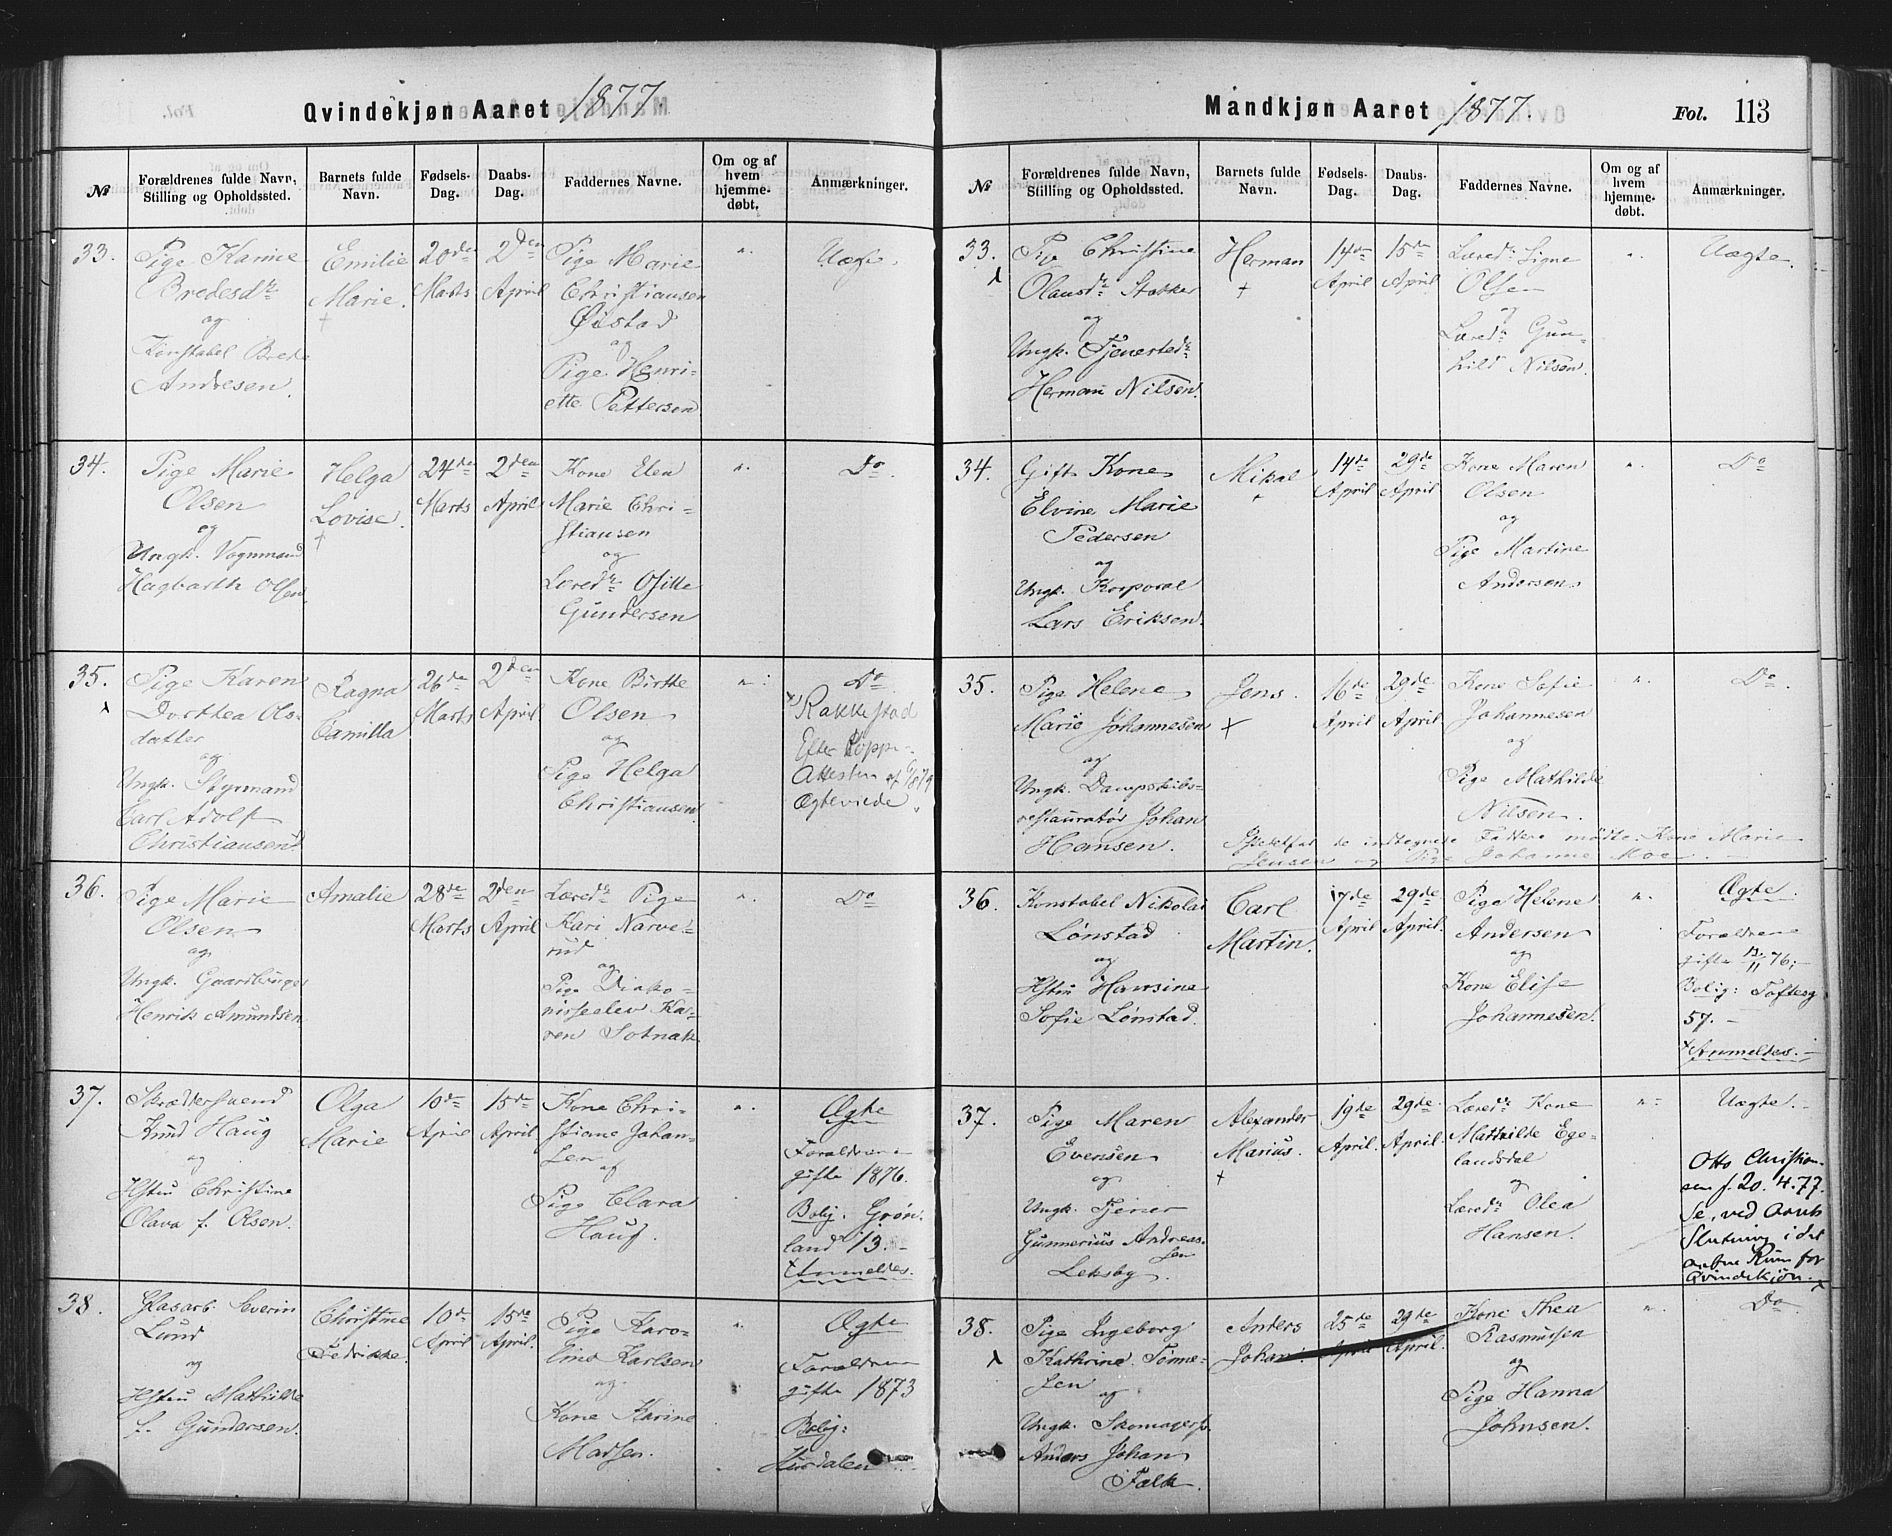 Qvindekjøn Aaret 1877.
№
Forældrenes fulde Navn,
Stilling og Opholdssted.
Barnets fulde
Navn.
Fødsels-
Dag.
Daabs-
Dag.
Faddernes Navne.
Om og af
hvem
hjemme-
døbt.
Anmærkninger.
33.
Pige Karine
Bredesdtr
og
Konstabel Brede
Andresen.
Emilie
Marie.
20de
Marts
2den
April
Pige Marie
Christiansen
Øistad
og
Pige Henri-
ette Pettersen
"
Uægte.
34.
Pige Marie
Olsen
og
Ungk. Vognmand
Hagbarth Olsen.
Helga
Lovise.
24de
Marts
2den
April
Kone Elen
Marie Chri-
stiansen
og
Læredtr
Gundersen
"
Do.
35.
Pige Karen
Dorthea Ols-
datter
og
Ungk. Styrmand
Carl Adolf
Christiansen
Ragna
Camilla
26de
Marts
2den
April
Kone Birthe
Olsen
og
Pige Helga
Christiansen
"
Do
Rakkestad
Efter
Attesten af
Ægteviede
36.
Pige Marie
Olsen
og
Ungk. Gaardbruger
Henrik Amundsen.
Amalie
28de
Marts
2den
April
Læredtr Pige
Kari Narve-
rud
og
Pige Diako-
nisseelev Ka-
ren Solnak
"
Do
37.
Skrædersvend
Knud Haug
og
Hstru Christine
Olava f. Olsen.
Olga
Marie
10de
April
15de
April
Kone Chri-
stiane Johan-
sen
og
Pige Clara
Haug.
"
Ægte
Forældrene
gifte 1876.
Bolig: Grøn-
land 13.-
Anmeldes.
38.
Glasarb. Severin
Lund
og
Hstru Mathilde
f. Gundersen.
Christine
Fredrikke.
10de
April
15de
April.
Pige Karo-
line Karlsen
og
Kone Karine
Madsen.
"
Ægte
Forældrene
gifte 1873
Bolig:
Mandkjøn Aaret 1877
Fol. 113
№
Forældrenes fulde Navn,
Stilling og Opholdssted.
Barnets fulde
Navn.
Fødsels-
Dag.
Daabs-
Dag.
Faddernes Navne.
Om og af
hvem
hjemme-
døbt.
Anmærkninger.
33.
Pige Christine
Olausdtr Stokker
og
Ungk. Tjenestedr.
Herman Nilsen.
Herman
14de
April
15de
April
Læredtr Signe
Olsen
og
Læredtr Gun-
hild Nilsen.
"
Uægte.
34.
Gift Kone
Elvine Marie
Pedersen
og
Ungk. Korporal
Lars Eriksen.
Mikal
14de
April
29de
April
Kone Maren
Olsen
og
Pige Martine
Andersen
"
Do
35.
Pige Helene
Marie Johannesen
og
Ungk. Dampskibs-
restauratør Johan
Hansen.
Jens.
16de
April
29de
April
Kone Sofie
Johannesen
og
Pige Mathilde
Nilsen.
"
Do
Istedetfor de indtegnede Faddere mødte: Kone Marie
Jensen og Pige Johanne Moe.
36.
Konstabel Nikolai
Lønstad
og
Hstru Hansine
Sofie Lønstad.
Carl
Martin.
17de
April
29de
April.
Pige Helene
Andersen
og
Kone Elise
Johannesen.
"
Ægte.
Forældrene
gifte 13/11 76;
Bolig: Toftesg
57.-
Anmeldes.-
37.
Pige Maren
Evensen
og
Ungk. Tjener
Gunnerius Andreas-
sen
Leksby.
Alexander
Marius.
19de
April.
29de
April.
Læredtr Kone
Mathilde Ege-
landsdal
og
Læredtr Olea
Hansen.
"
Uægte.-
Otto Christian-
sen f. 20.4.77.
Se, ved Aarets
Slutning i det
aabne Rum for
Qvindekjøn.
38.
Pige Ingeborg
Kathrine Tønne-
sen og
Ungk. Skomagersv.
Anders Johan
Falk.
Anders
Johan.
25de
April
29de
April.
Kone Thea
Rasmussen
og
Pige Hanna
Johnsen.
"
Do.